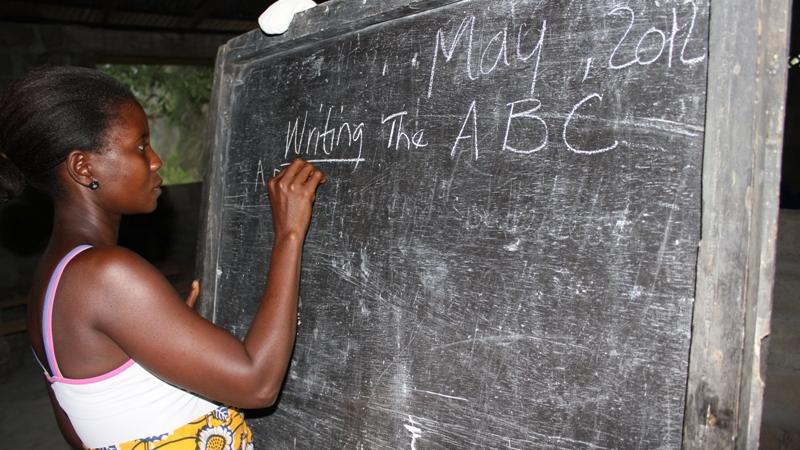 May, 2012
Writing The A B C
A